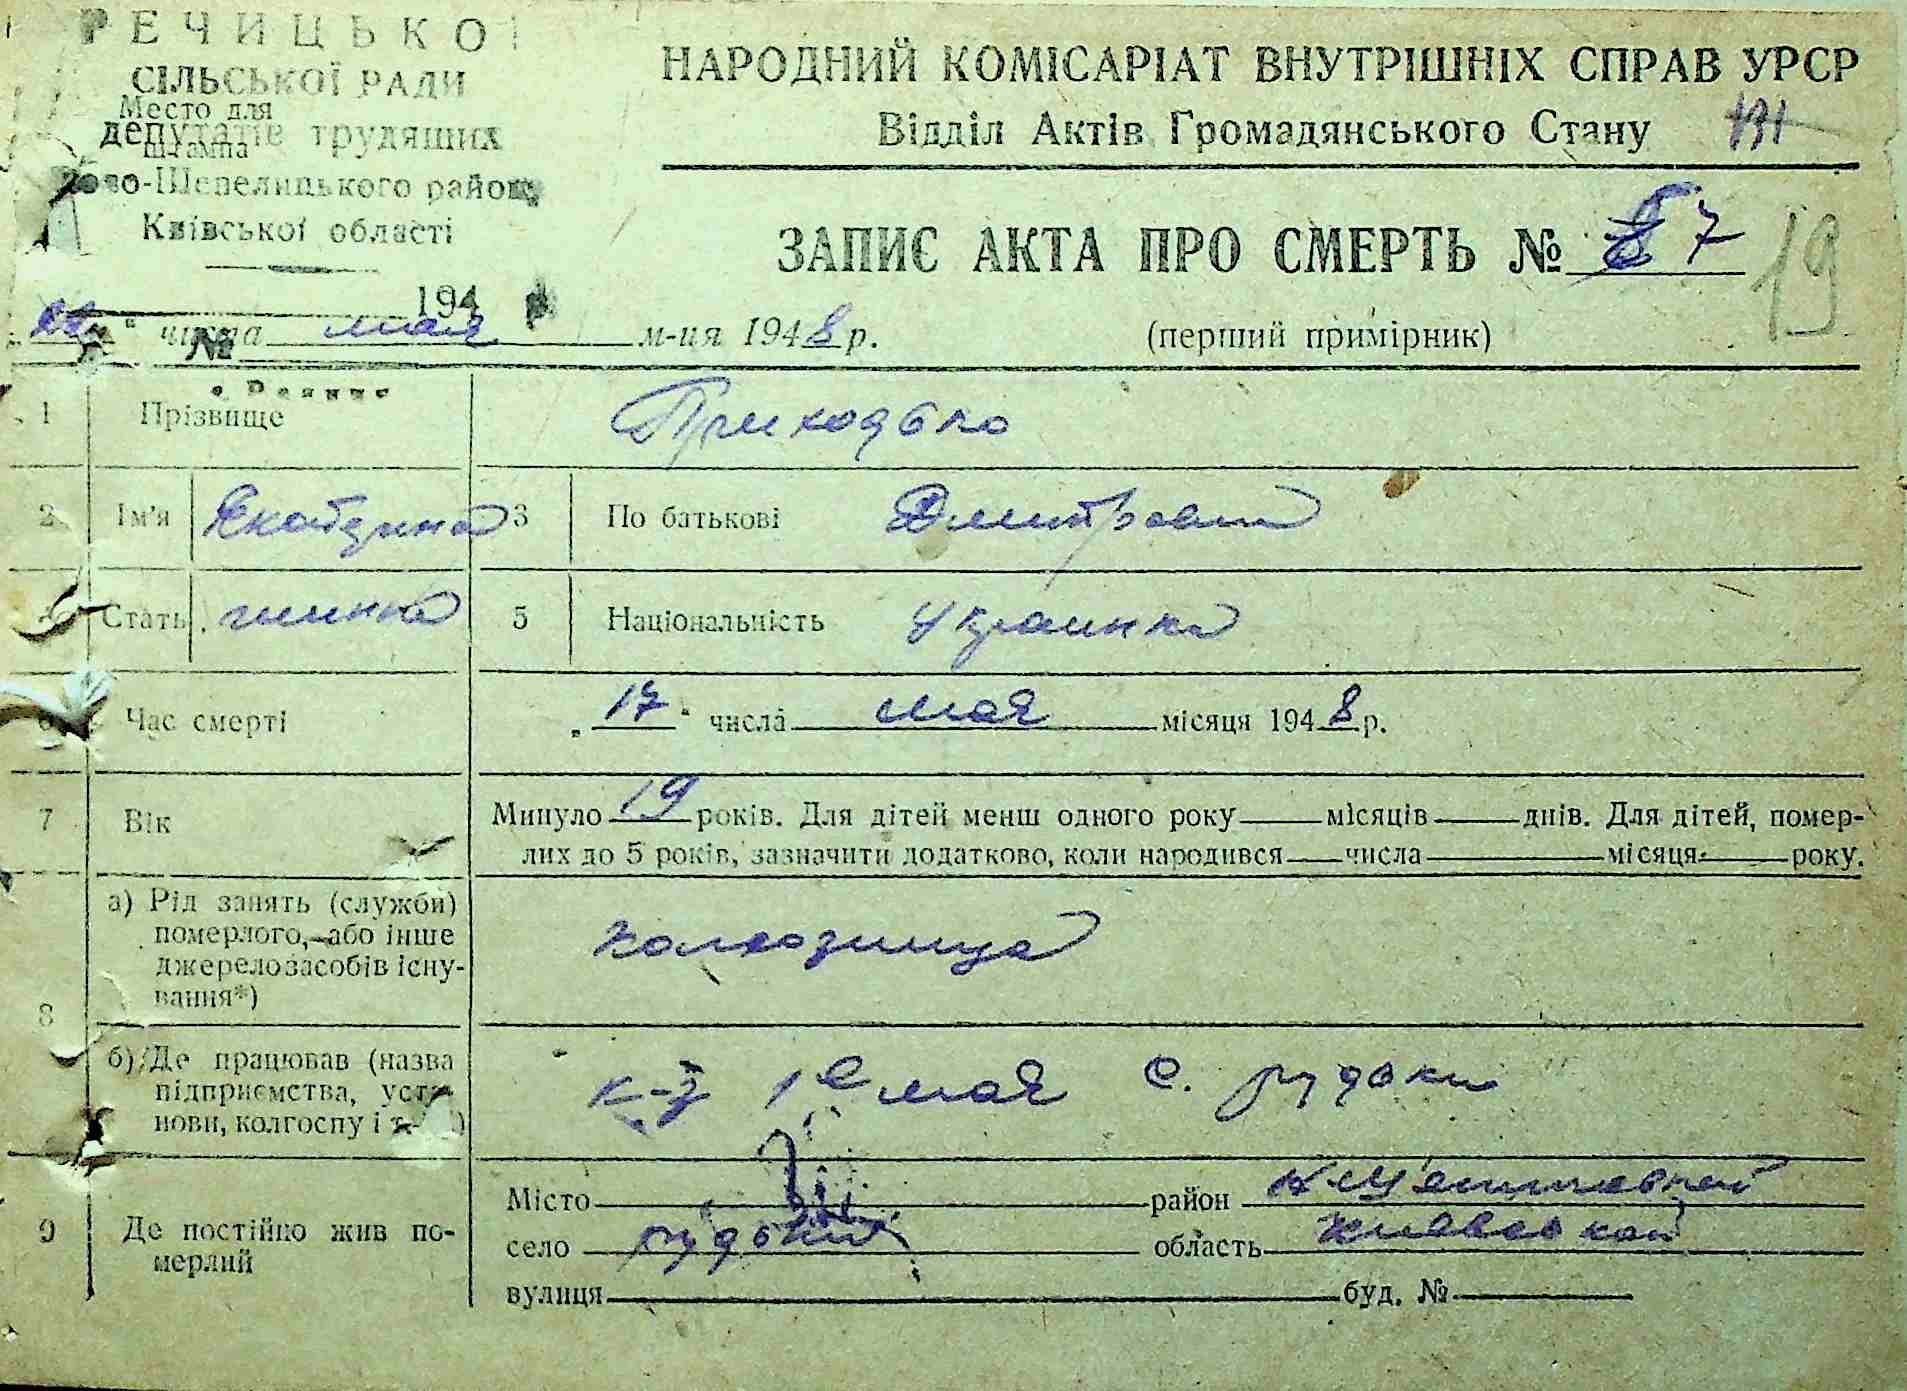 РЕЧИЦЬКОЇ
СІЛЬСЬКОЇ РАДИ
Место для
депутатів трудящих
штампа
Ново-Шепелицького району
Київської області
194
№
НАРОДНИЙ КОМІСАРІАТ ВНУТРІШНІХ СПРАВ УРСР
Відділ Актів Громадянського Стану
ЗАПИС АКТА ПРО СМЕРТЬ № 7
19
" числа мая м-ця 1948 р.
(перший примірник)
1 Прізвище Приходько
2 Ім'я Екатерина 3 По батькові Дмитровна
4 Стать 5 Національність Украинка
6 Час смерті "17" числа мая місяця 1948 р.
7 Вік Минуло 19 років. Для дітей менш одного року місяців днів. Для дітей, помер-
лих до 5 років, зазначити додатково, коли народився числа місяця року.
8 а) Рід занять (служби)
померлого, або інше
джерело засобів існу-
вання*)
колхозница
б) Де працював (назва
підприємства, уста-
нови, колгоспу і т.
к-з 1е мая с. рудьки
9 Де постійно жив по-
мерлий
Місто район Н-Шепиличский
село рудьки область киевской
вулиця буд. №